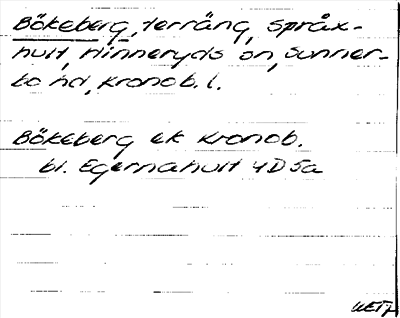 Bökeberg, terräng, Språx-
hult, Hinneryds sn, Sunner-
bo hd, Kronob. l.
Bökeberg ek Kronob.
bl. Egernahult 4D5a